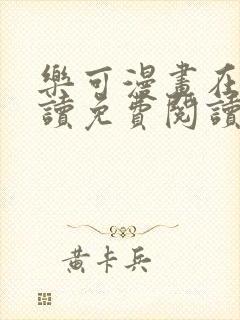 樂可漫畫在
讀免費閱讀
黃卡兵